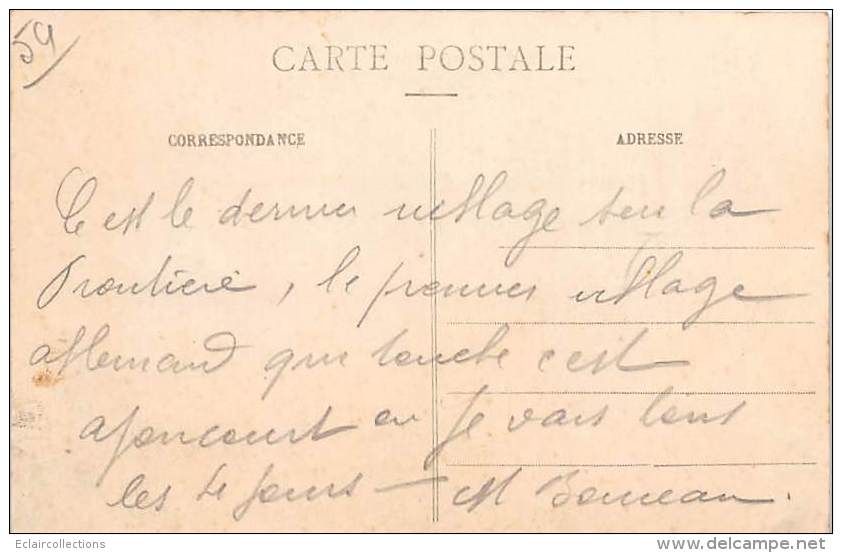 59
CARTE POSTALE
CORRESPONDANCE
ADRESSE
C'est le dernier village sur la
frontière, le premier village
allemand qui touche c'est
ajoncourt ou je vais tous
les 4 jours — M Bonneau.
Eclaircollections
www.delcampe.net